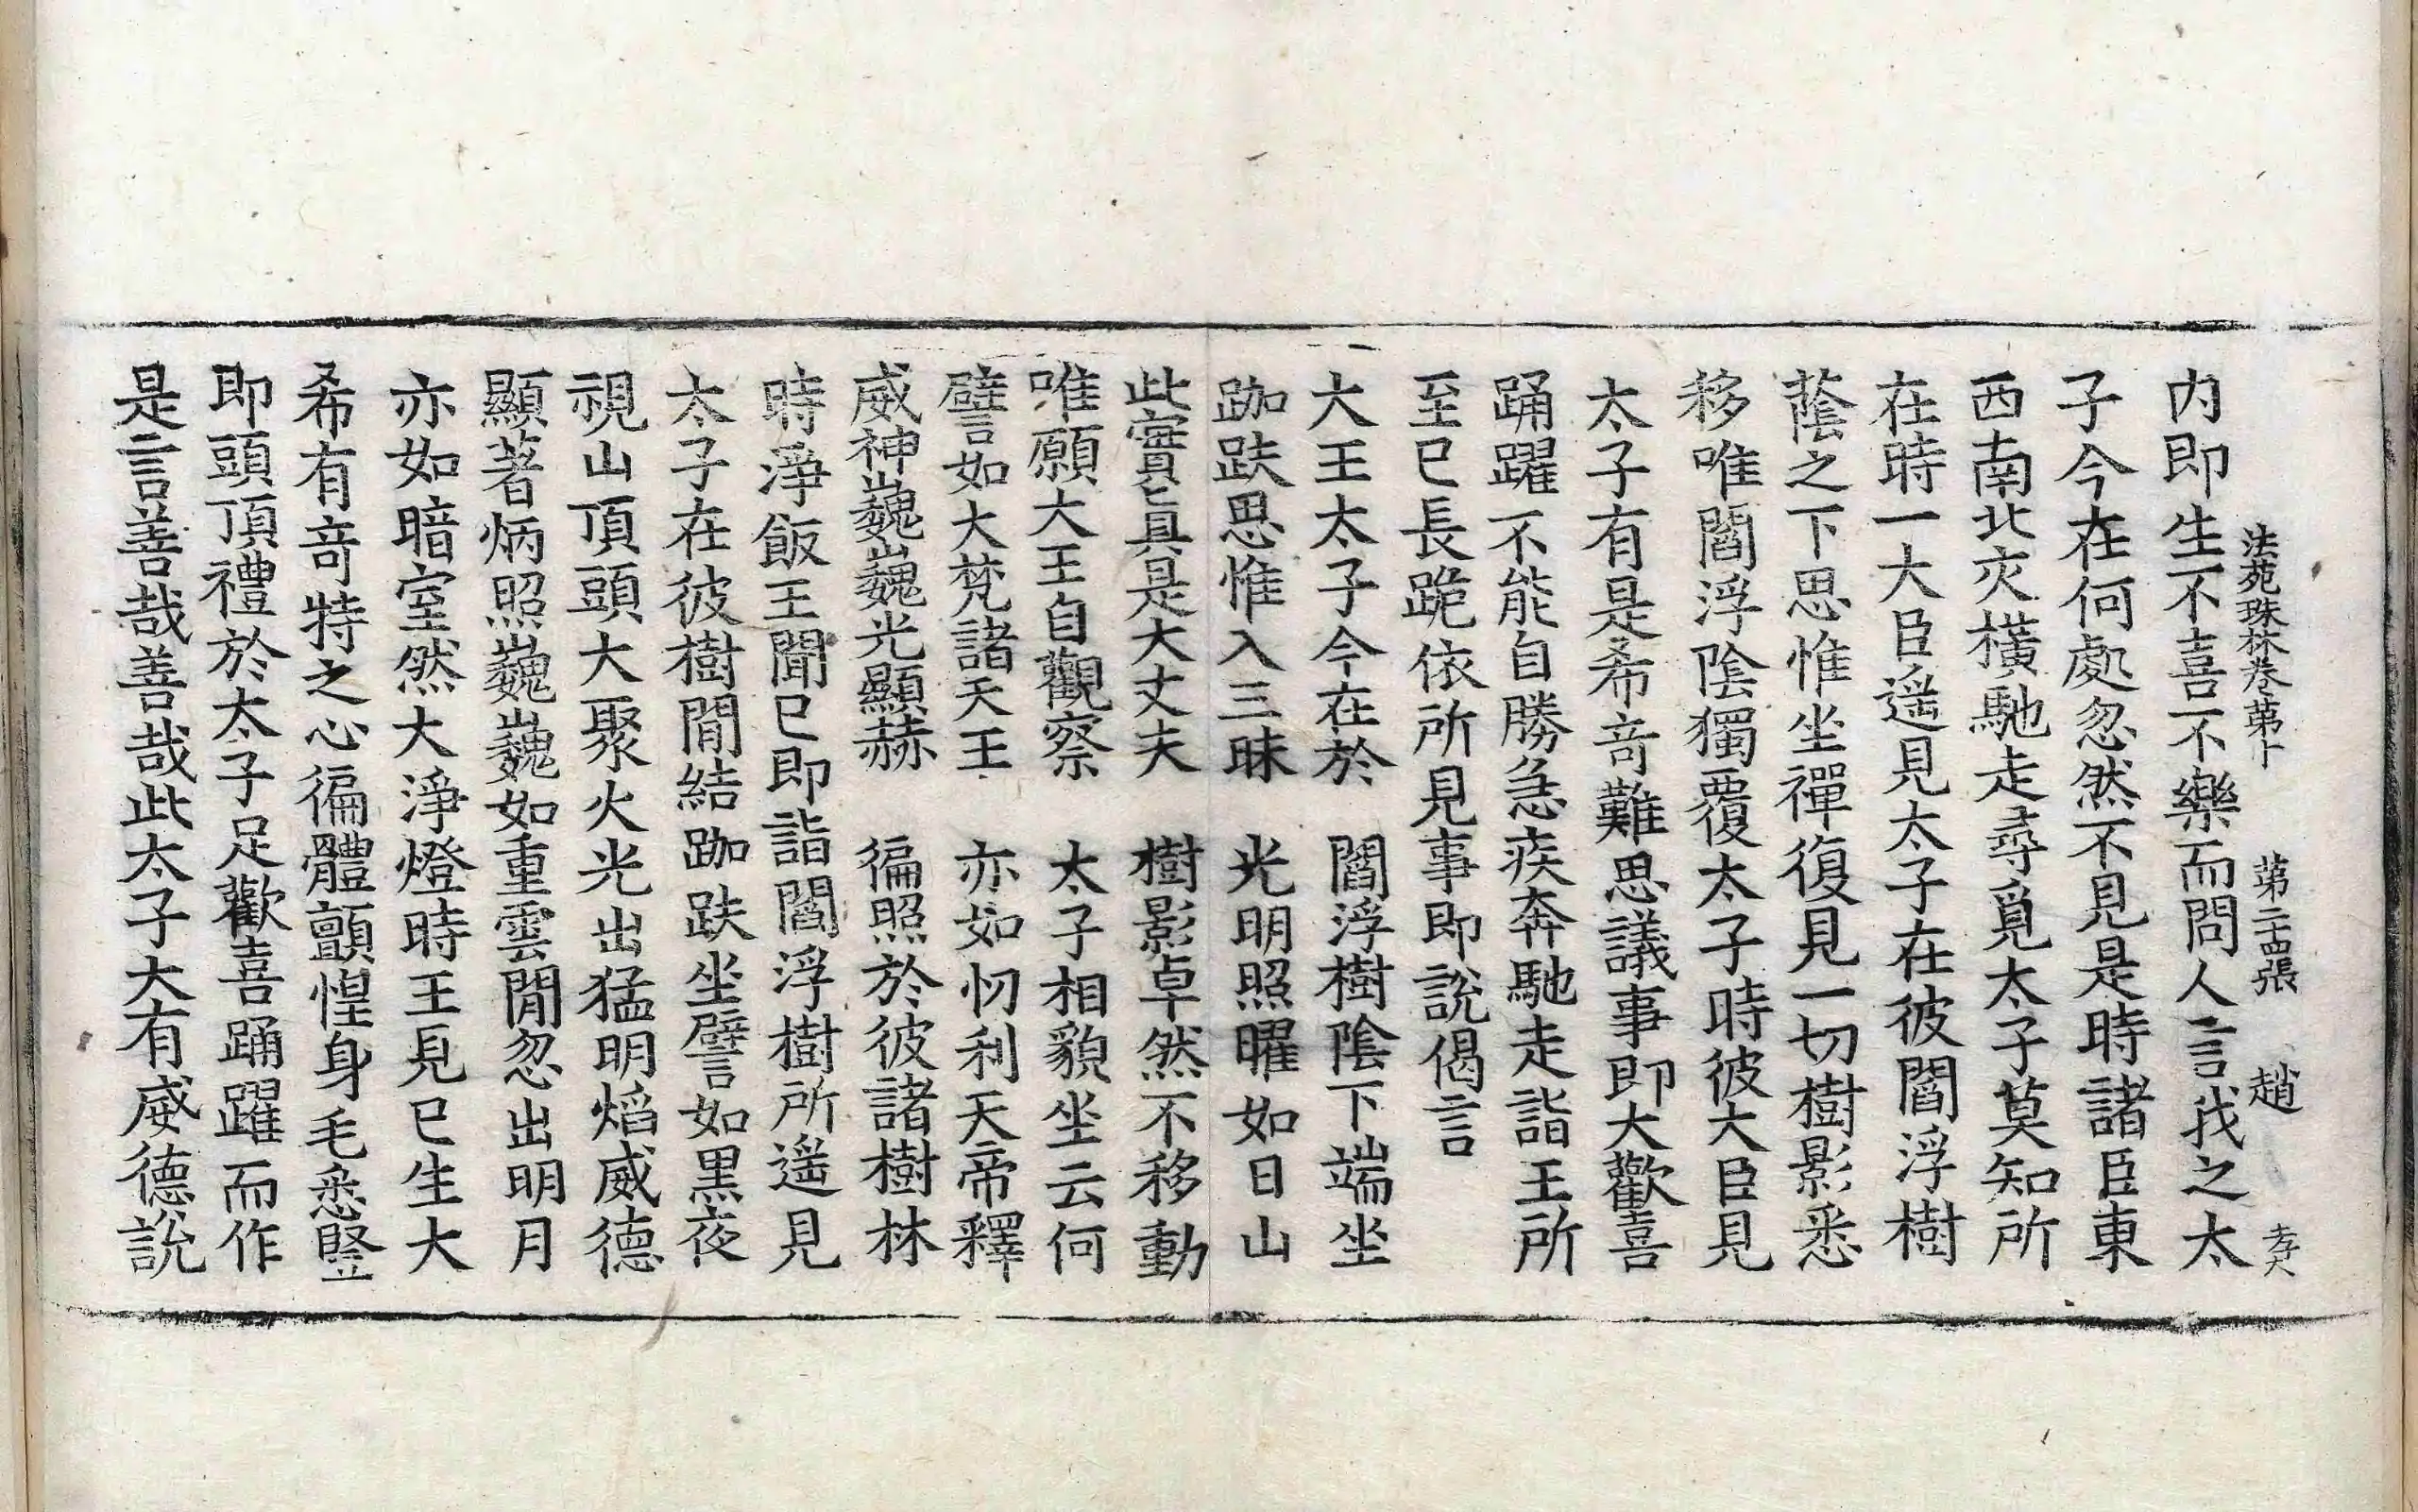 内即生不喜不樂而問人言我之太
法苑珠林卷第十 第二十四張 趙 孝
子今在何處忽然不見是時諸臣東
西南北交橫馳走尋覓太子莫知所
在時一大臣遥見太子在彼閻浮樹
蔭之下思惟坐禪復見一切樹影悉
移唯閻浮陰獨覆太子時彼大臣見
太子有是希竒難思議事即大歡喜
踊躍不能自勝急疾奔馳走詣王所
至已長跪依所見事即說偈言
大王太子今在於 閻浮樹陰下端坐
跏趺思惟入三昧 光明照曜如日山
此實真是大丈夫 樹影卓然不移動
唯願大王自觀察 太子相貌坐云何
譬如大梵諸天王 亦如忉利天帝釋
威神巍巍光顯赫 徧照於彼諸樹林
時淨飯王聞已即詣閻浮樹所遥見
太子在彼樹間結跏趺坐譬如黒夜
視山頂頭大聚火光出猛明焰威德
顯著炳照巍巍如重雲間忽出明月
亦如暗室然大淨燈時王見已生大
希有竒特之心徧體顫惶身毛悉竪
即頭頂禮於太子足歡喜踊躍而作
是言善哉善哉此太子大有威德說